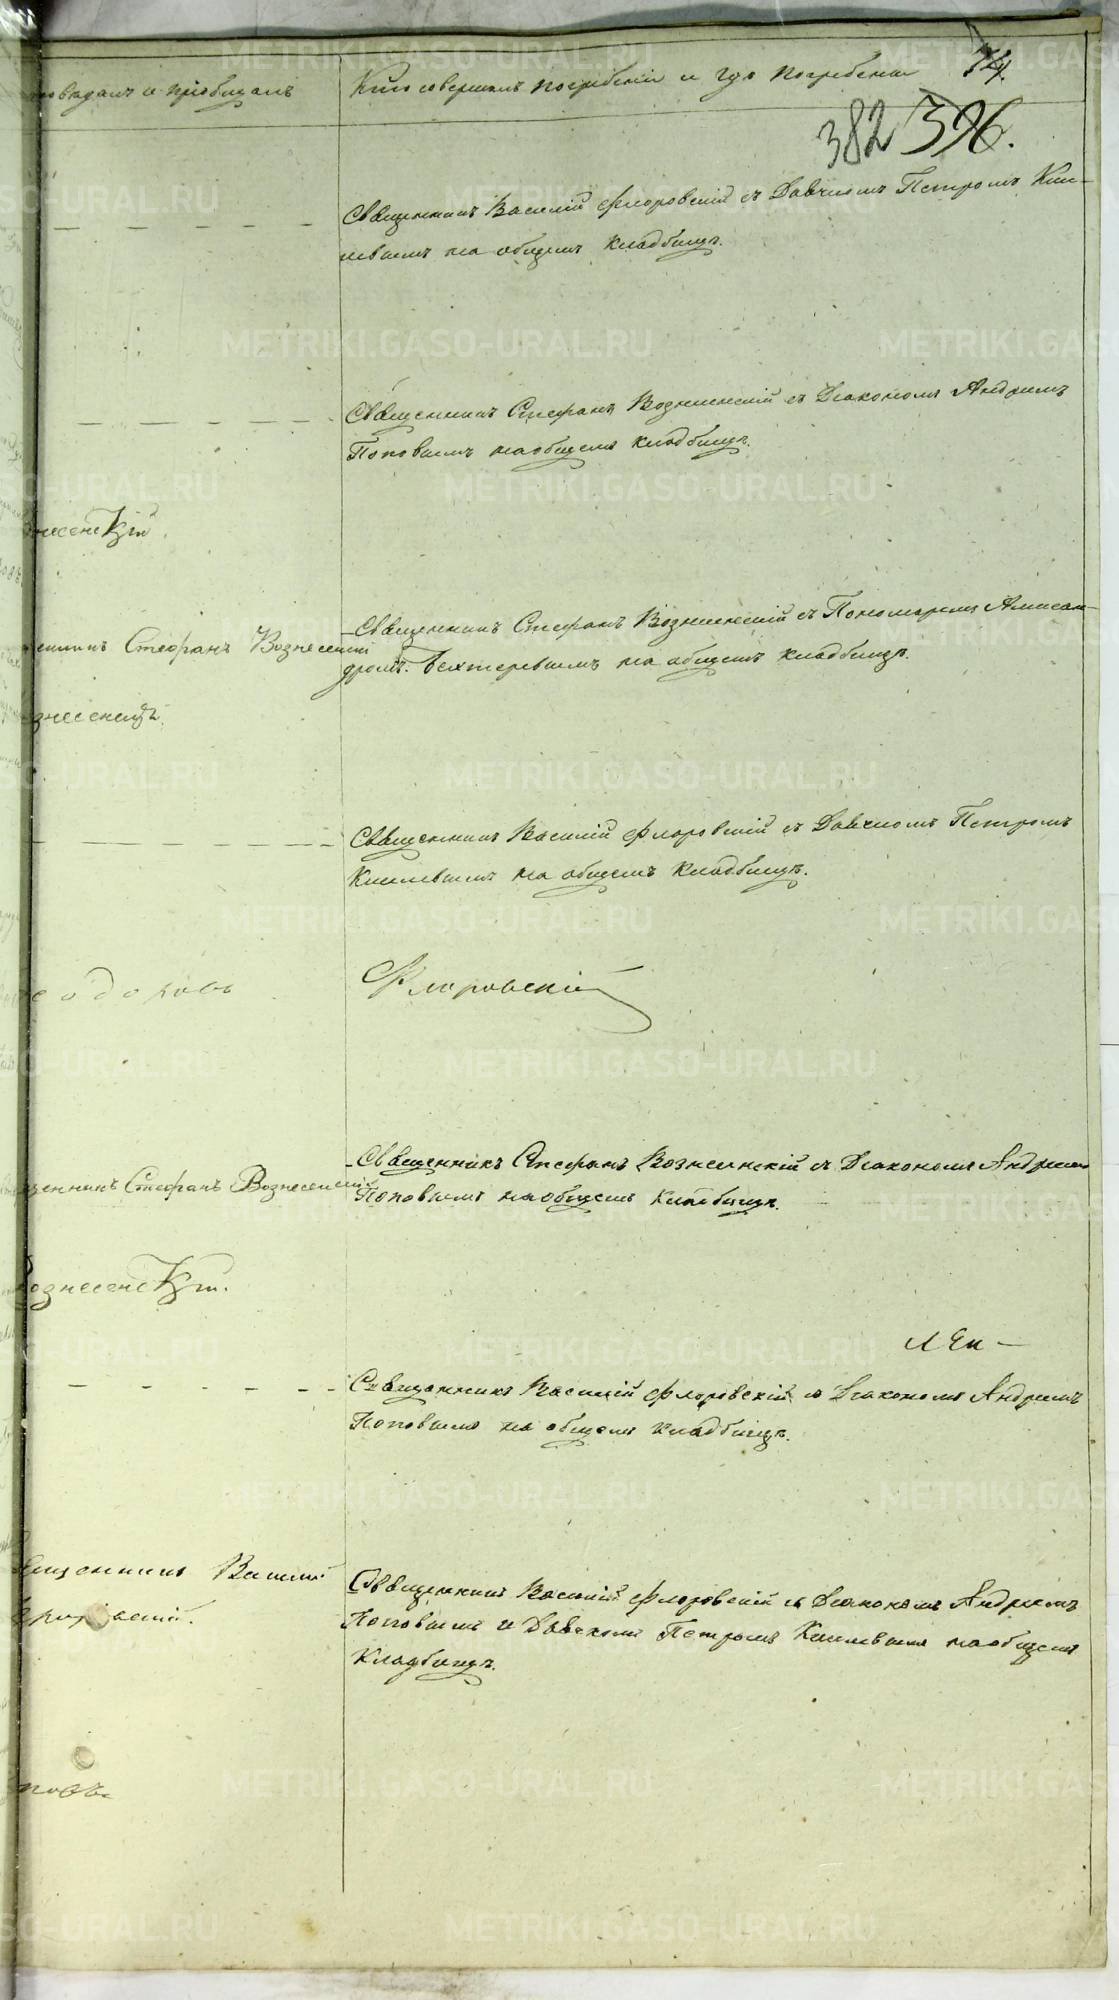 исповѣдалъ и пріобщалъ
Кто совершалъ погребеніе и гдѣ погребены
74.
382 396.
Священникъ Василій Флоровскій съ Дьячкомъ Петромъ Кис-
левымъ на общемъ кладбищѣ.
Священникъ Стефанъ Вознесенскій съ Діакономъ Андреемъ
Поповымъ на общемъ кладбищѣ.
знесенскій
щенникъ Стефанъ Вознесенскій
Священникъ Стефанъ Вознесенскій съ Пономаремъ Алексан-
дромъ Бехтеревымъ на общемъ кладбищѣ.
знесенскій
Священникъ Василій Флоровскій съ Дьячкомъ Петромъ
Киселевымъ на общемъ кладбищѣ.
еодоровъ
Флоровскій
щенникъ Стефанъ Вознесенскій
Священникъ Стефанъ Вознесенскій съ Діакономъ Андреемъ
Поповымъ на общемъ кладбищѣ.
Вознесенскій.
Священникъ Василій Флоровскій съ Діакономъ Андреемъ
Поповымъ на общемъ кладбищѣ.
ященникъ Василій
Флоровскій.
Священникъ Василій Флоровскій съ Діакономъ Андреемъ
Поповымъ и Дьячкомъ Петромъ Киселевымъ на общемъ
кладбищѣ.
повъ
METRIKI.GASO-URAL.RU